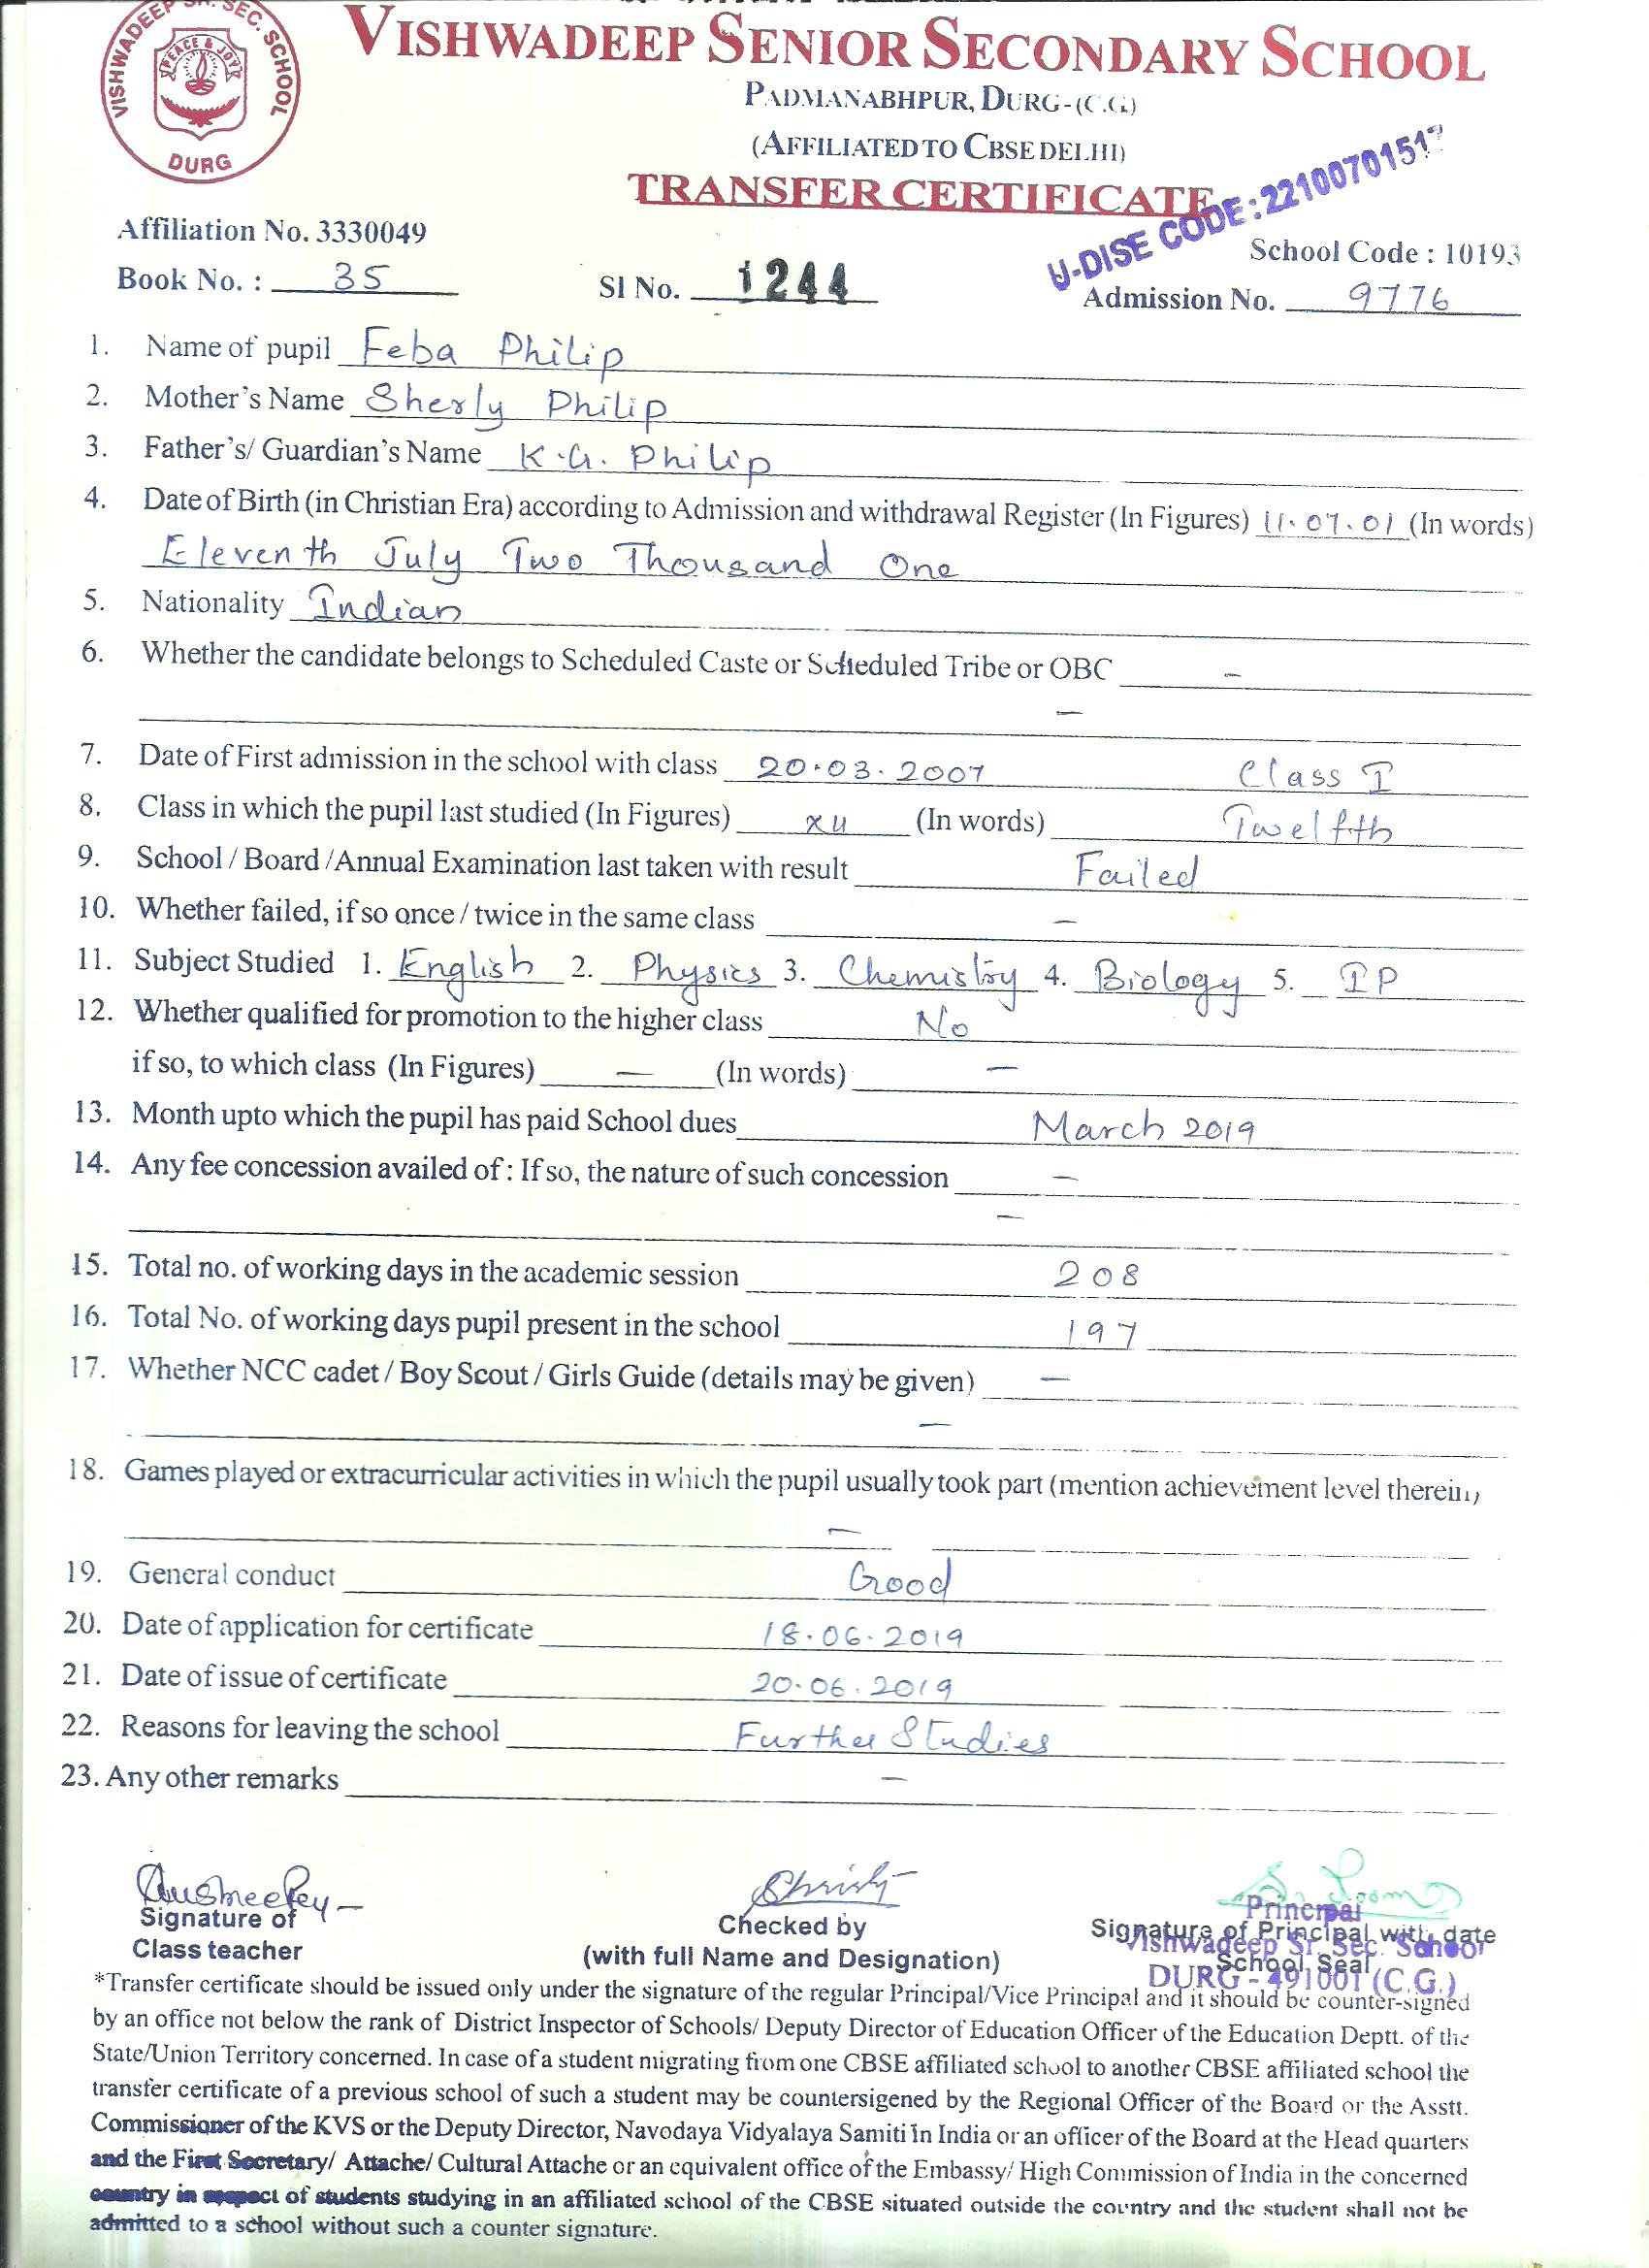 VISHWADEEP SR. SEC. SCHOOL
PEACE & JOY
DURG
VISHWADEEP SENIOR SECONDARY SCHOOL
PADMANABHPUR, DURG-(C.G.)
(AFFILIATED TO CBSE DELHI)
TRANSFER CERTIFICATE
U-DISE CODE: 22100701517
Affiliation No. 3330049
School Code : 10193
Book No. : 35 Sl No. 1244 Admission No. 9776
1. Name of pupil Feba Philip
2. Mother's Name Sherly Philip
3. Father's/ Guardian's Name K.G. Philip
4. Date of Birth (in Christian Era) according to Admission and withdrawal Register (In Figures) 11.07.01 (In words)
Eleventh July Two Thousand One
5. Nationality Indian
6. Whether the candidate belongs to Scheduled Caste or Scheduled Tribe or OBC –
–
7. Date of First admission in the school with class 20.03.2007 Class I
8. Class in which the pupil last studied (In Figures) XII (In words) Twelfth
9. School / Board /Annual Examination last taken with result Failed
10. Whether failed, if so once / twice in the same class –
11. Subject Studied 1. English 2. Physics 3. Chemistry 4. Biology 5. IP
12. Whether qualified for promotion to the higher class No
if so, to which class (In Figures) – (In words) –
13. Month upto which the pupil has paid School dues March 2019
14. Any fee concession availed of : If so, the nature of such concession –
–
15. Total no. of working days in the academic session 208
16. Total No. of working days pupil present in the school 197
17. Whether NCC cadet / Boy Scout / Girls Guide (details may be given) –
–
18. Games played or extracurricular activities in which the pupil usually took part (mention achievement level therein)
–
19. General conduct Good
20. Date of application for certificate 18.06.2019
21. Date of issue of certificate 20.06.2019
22. Reasons for leaving the school Further Studies
23. Any other remarks –
Signature of
Class teacher
Checked by
(with full Name and Designation)
Principal
Signature of Principal with date
Vishwadeep Sr. Sec. School
School Seal
DURG - 491001 (C.G.)
*Transfer certificate should be issued only under the signature of the regular Principal/Vice Principal and it should be counter-signed
by an office not below the rank of District Inspector of Schools/ Deputy Director of Education Officer of the Education Deptt. of the
State/Union Territory concerned. In case of a student migrating from one CBSE affiliated school to another CBSE affiliated school the
transfer certificate of a previous school of such a student may be countersigened by the Regional Officer of the Board or the Asstt.
Commissioner of the KVS or the Deputy Director, Navodaya Vidyalaya Samiti in India or an officer of the Board at the Head quarters
and the First Secretary/ Attache/ Cultural Attache or an equivalent office of the Embassy/ High Commission of India in the concerned
country in respect of students studying in an affiliated school of the CBSE situated outside the country and the student shall not be
admitted to a school without such a counter signature.